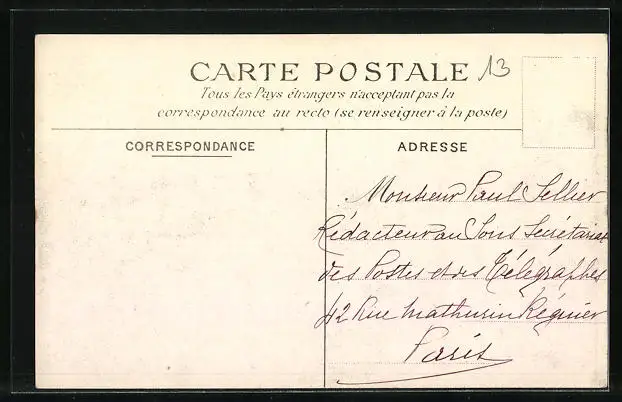 CARTE POSTALE
13
Tous les Pays étrangers n'acceptant pas la
correspondance au recto (se renseigner à la poste)
CORRESPONDANCE
ADRESSE
Monsieur Paul Sellier
Rédacteur au Sous Secrétariat
des Postes et des Télégraphes
42 Rue Mathurin Régnier
Paris